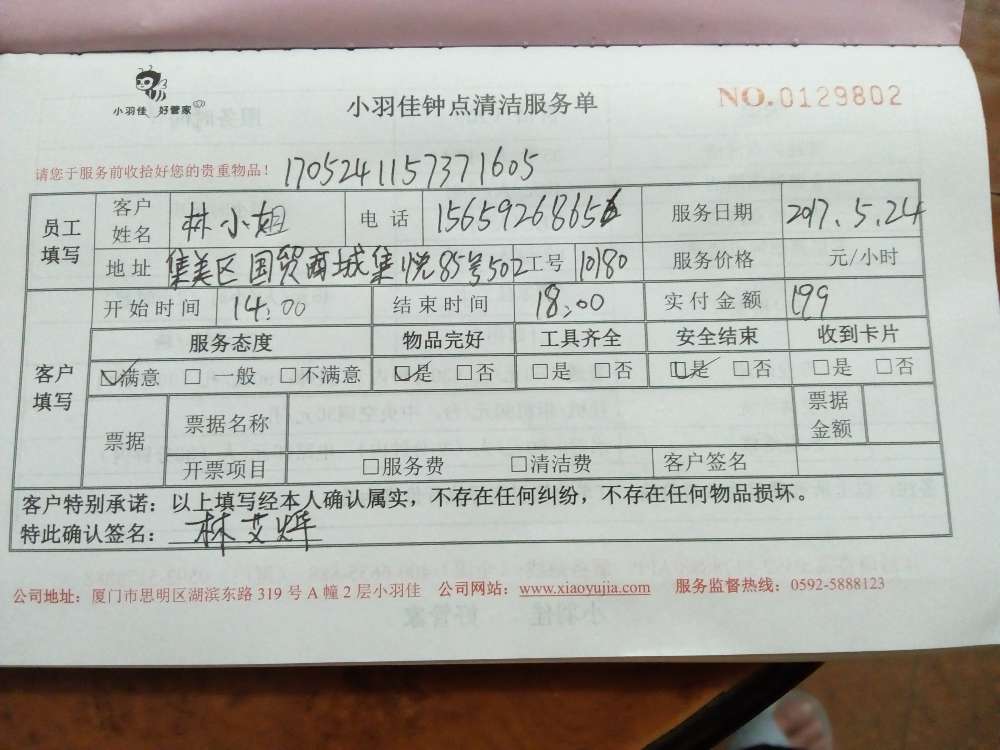 小羽佳 好管家
小羽佳钟点清洁服务单
NO.0129802
请您于服务前收拾好您的贵重物品! 1705241157371605
员工填写 客户姓名 林小姐 电话 15659268656 服务日期 2017.5.24
地址 集美区国贸商城集悦85号502 工号 10180 服务价格 元/小时
客户填写 开始时间 14:00 结束时间 18:00 实付金额 199
服务态度 物品完好 工具齐全 安全结束 收到卡片
☑满意 □一般 □不满意 ☑是 □否 □是 □否 ☑是 □否 □是 □否
票据 票据名称 票据金额
开票项目 □服务费 □清洁费 客户签名
客户特别承诺：以上填写经本人确认属实，不存在任何纠纷，不存在任何物品损坏。
特此确认签名：林艾烨
公司地址：厦门市思明区湖滨东路 319 号 A 幢 2 层小羽佳 公司网站：www.xiaoyujia.com 服务监督热线：0592-5888123